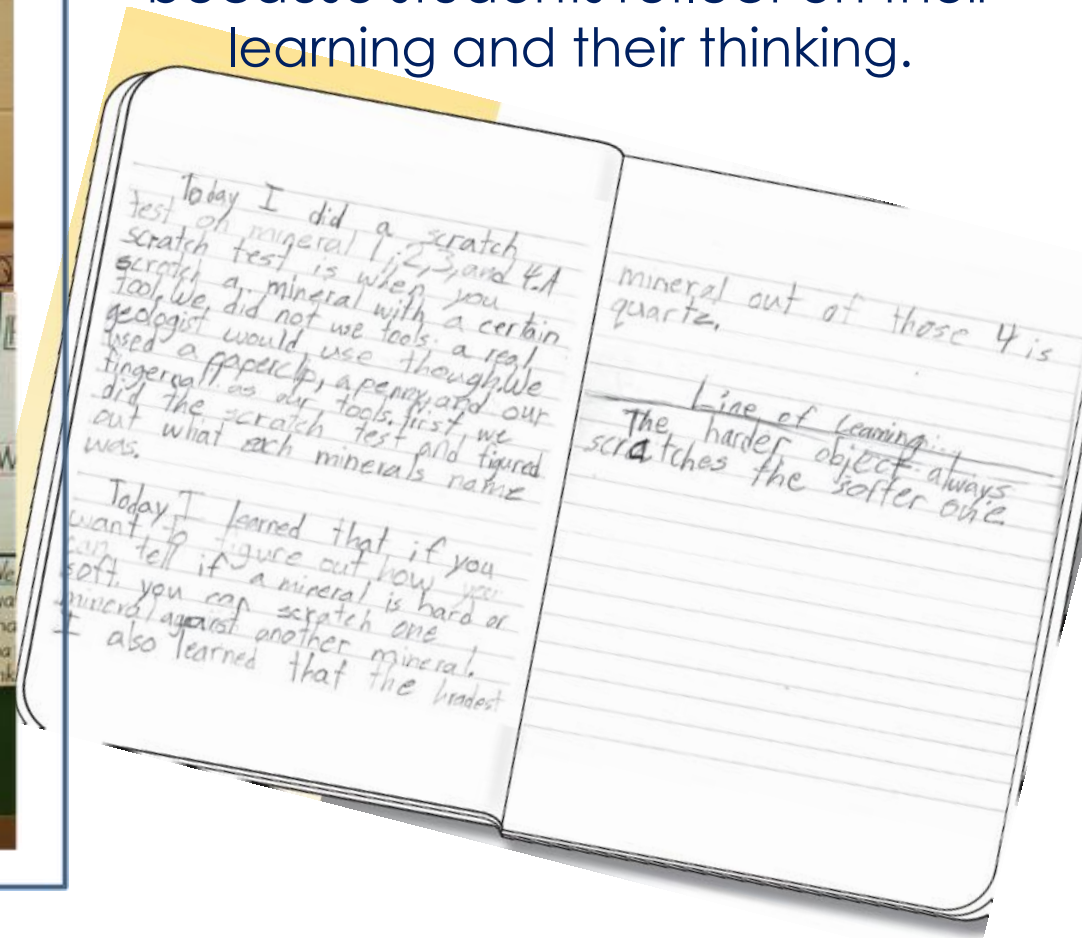 because students reflect on their
learning and their thinking.
Today I did a scratch
test on mineral 1,2,3, and 4. A
scratch test is when you
scratch a mineral with a certain
tool. We did not use tools a real
geologist would use though. We
used a paperclip, a penny, and our
fingernail as our tools. first, we
did the scratch test and figured
out what each minerals name
was.
Today I learned that if you
want to figure out how
can tell if a mineral is hard or
soft. you can scratch one
mineral against another mineral.
I also learned that the hradest
mineral out of those 4 is
quartz.
Line of Learning:
The harder object always
scratches the softer one